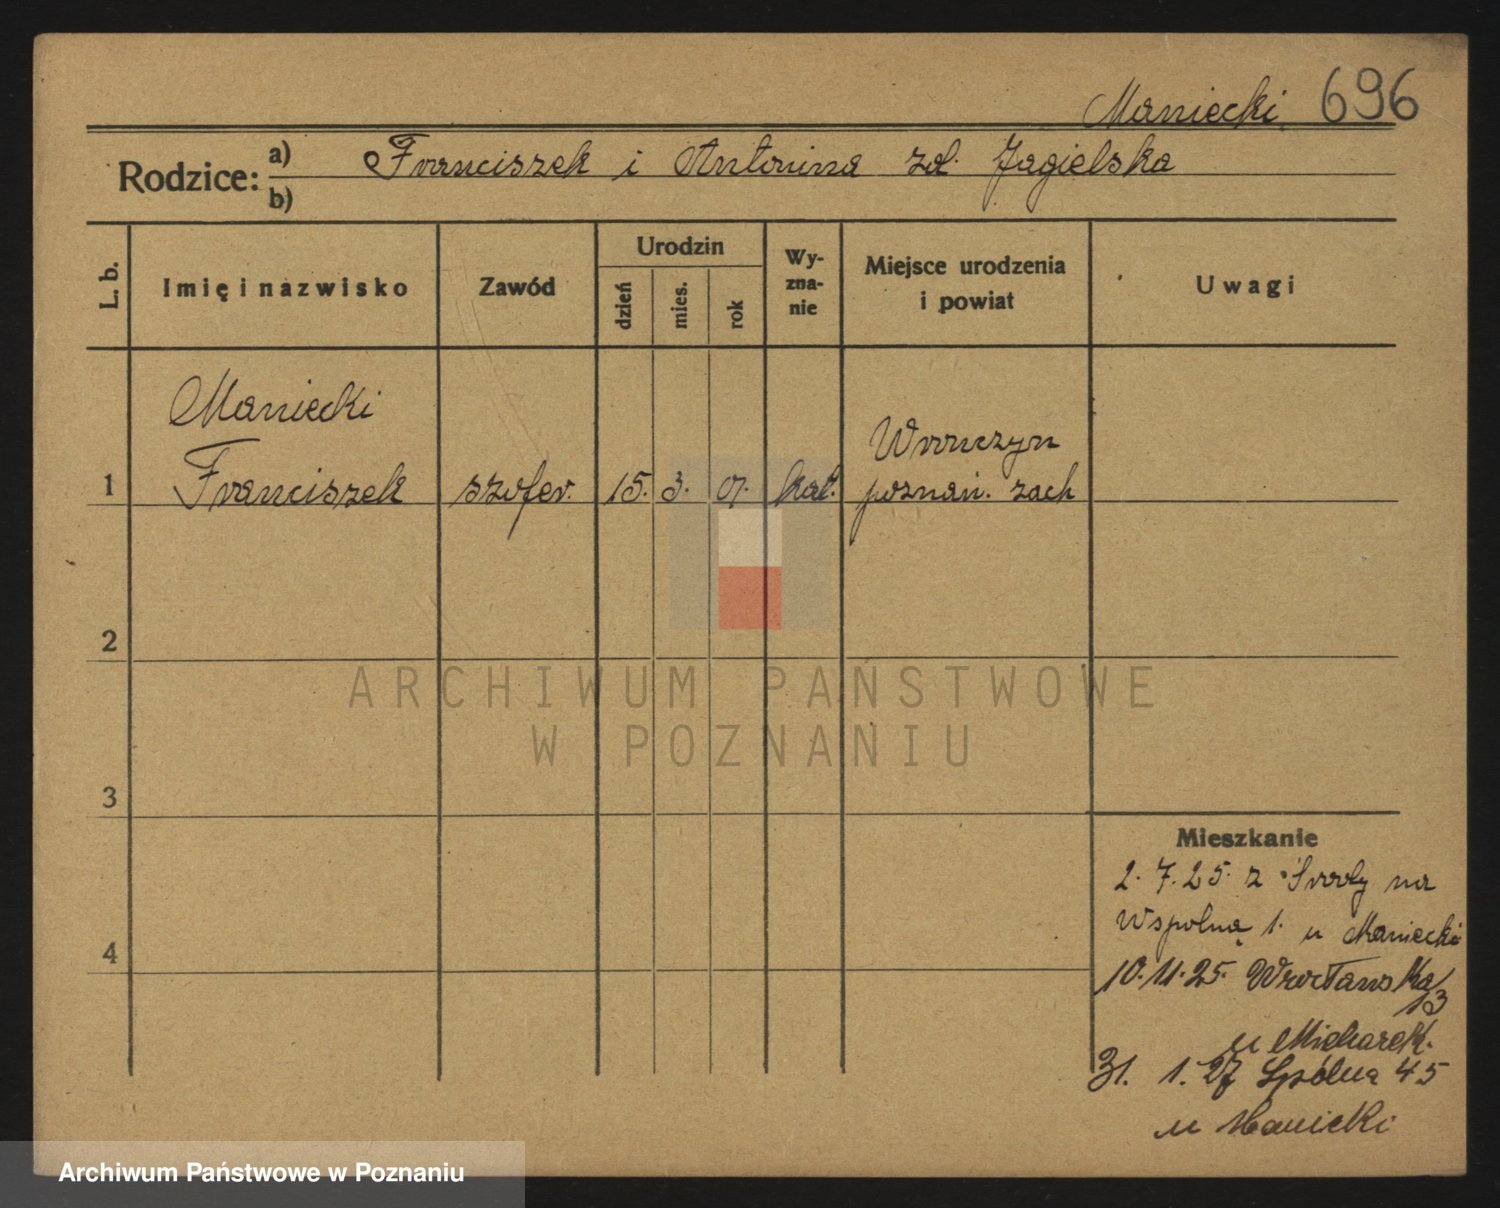 Maniecki 696
Rodzice: a) Franciszek i Antonina zd. Jagielska
b)
L. b.
Imię i nazwisko
Zawód
Urodzin
dzień
mies.
rok
Wy-
zna-
nie
Miejsce urodzenia
i powiat
Uwagi
Maniecki
1 Franciszek szofer. 15. 3. 07. kat.
Wronczyn
poznań. zach
2
3
4
Mieszkanie
2. 7. 25. z Środy na
Wspolną 1. u Maniecki
10. 11. 25. Wrocławska
13
u Micharek.
31. 1. 27 Spólna 45
u Maniecki
ARCHIWUM PAŃSTWOWE
W POZNANIU
Archiwum Państwowe w Poznaniu